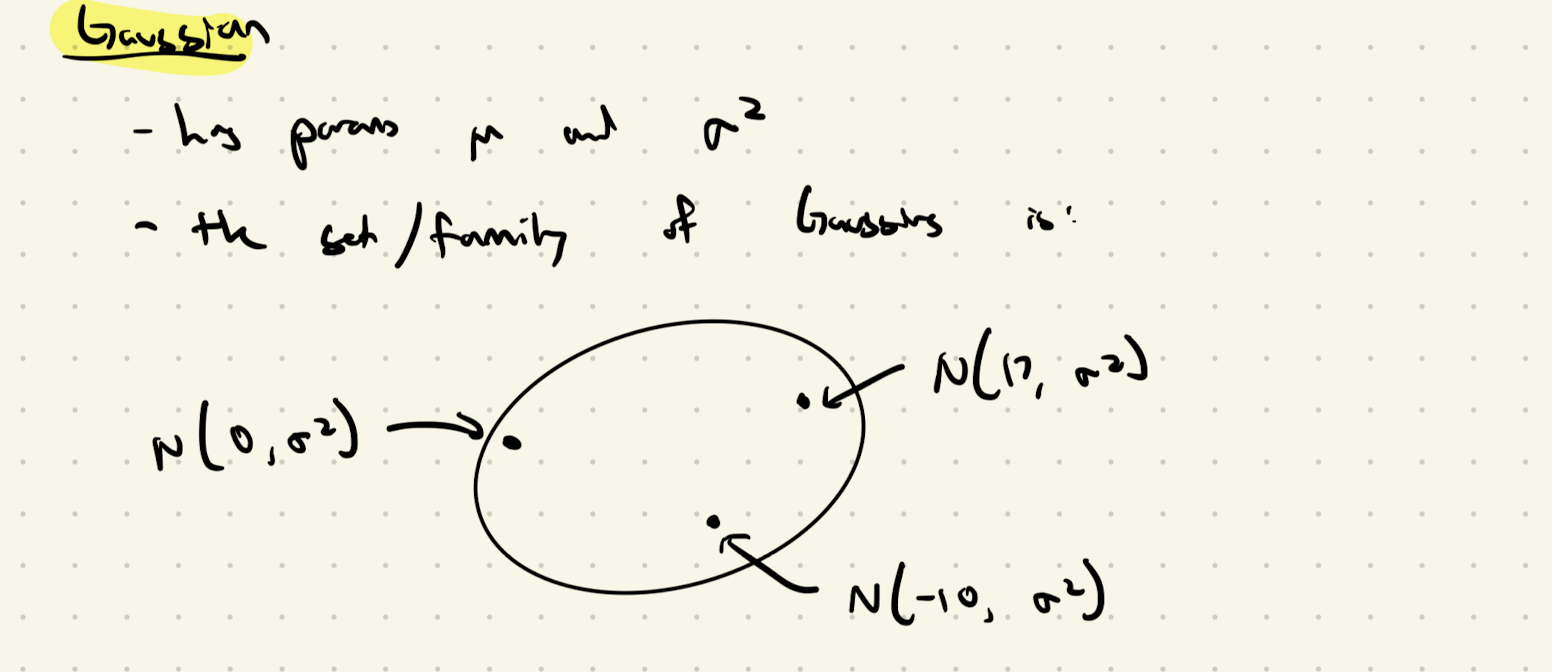 Gaussian
- has params μ and σ²
- the set/family of Gaussians is:
N(17, σ²)
N(0, σ²)
N(-10, σ²)